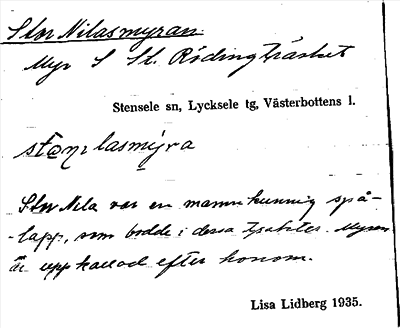 Stor Nilasmyran
Myr S St. Rödingträsket
Stensele sn, Lycksele tg, Västerbottens l.
Stor Nila var en mannkunnig spå-
-lapp, som bodde i dessa trakter. Myren
är uppkallad efter honom.
Lisa Lidberg 1935.